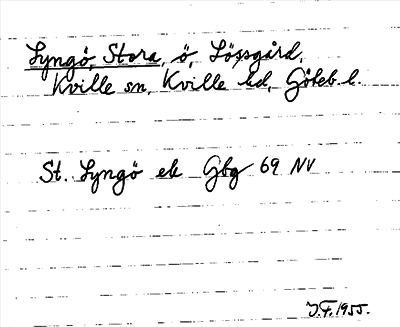 Lyngö, Stora, ö, Lössgård,
Kville sn, Kville hd, Göteb. l.
St. Lyngö ek Gbg 69 NV
J.F. 1955.